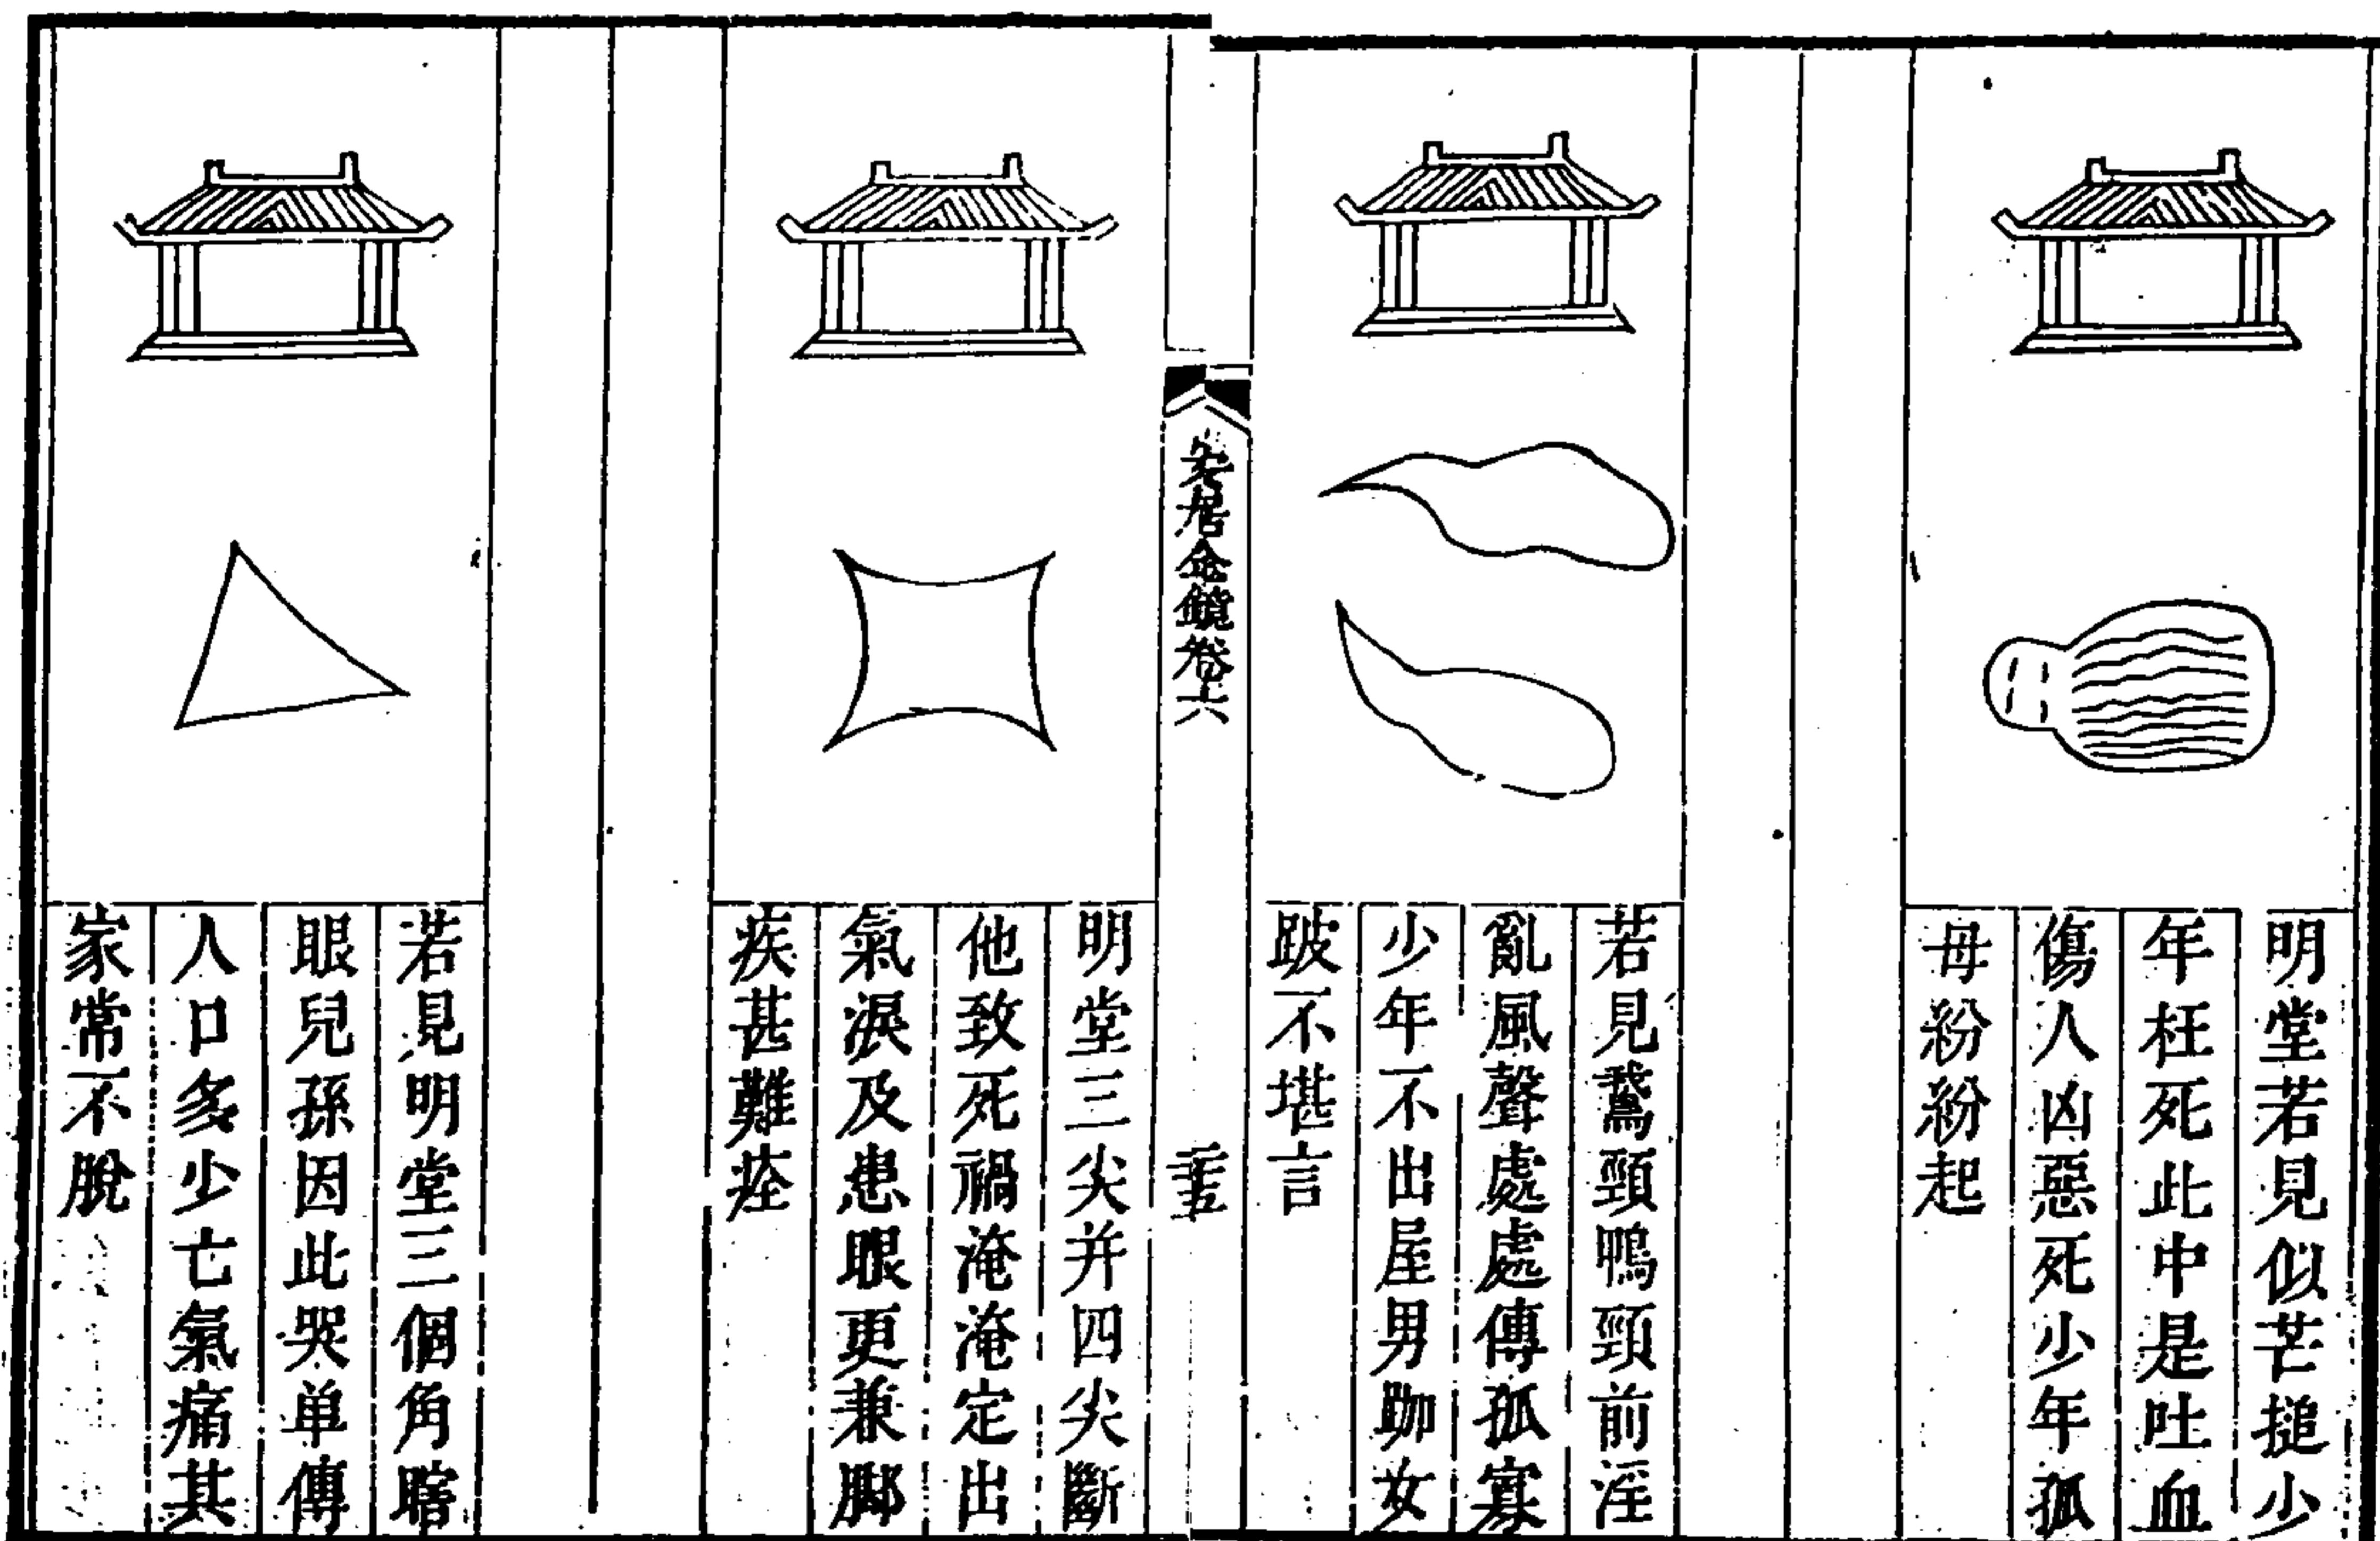 明堂若見似芒搥少
年枉死此中是吐血
傷人凶惡死少年孤
母紛紛起
若見鵞頸鴨頸前淫
亂風聲處處傳孤寡
少年不出屋男跏女
跛不堪言
安居金鏡卷六
明堂三尖并四尖斷
他致死禍淹淹定出
氣淚及患眼更兼腳
疾甚難痊
若見明堂三個角瞎
眼兒孫因此哭单傳
人口多少亡氣痛其
家常不脫